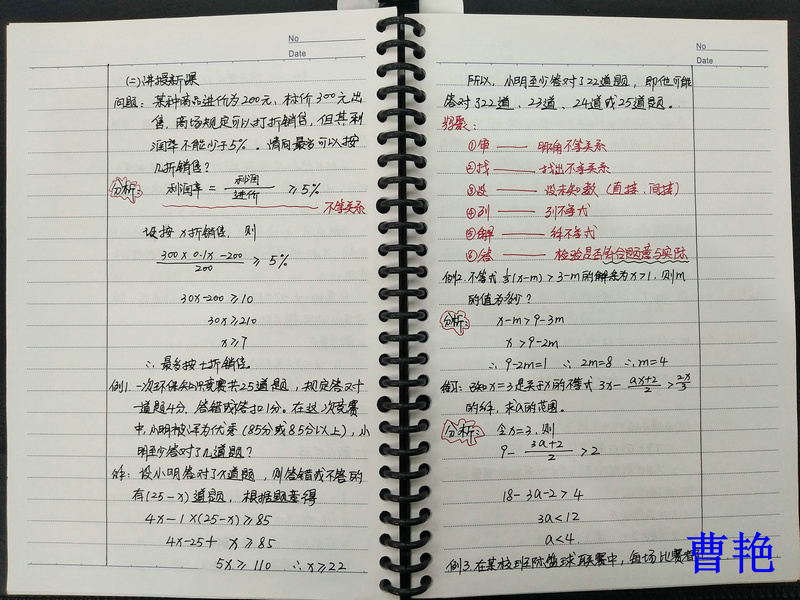 No
Date
(二)讲授新课
问题：某种商品进价为200元，标价300元出
售，商场规定可以打折销售，但其利
润率不能少于5%。请问最多可以按
几折销售？
分析： 利润率 = 利润/进价 ≥ 5%
不等关系
设按x折销售，则
(300×0.1x-200)/200 ≥ 5%
30x-200≥10
30x≥210
x≥7
∴最多按七折销售。
例1.一次环保知识竞赛共25道题，规定答对
一道题4分，答错或不答扣1分。在这次竞赛
中，小明被评为优秀(85分或85分以上)，小
明至少答对了几道题？
解：设小明答对了x道题，则答错或不答的
有(25-x)道题，根据题意得
4x-1×(25-x)≥85
4x-25+ x≥85
5x≥110 ∴x≥22
No
Date
所以，小明至少答对了22道题，即他可能
答对22道、23道、24道或25道题。
①审 —— 明确不等关系
②找 —— 找出不等关系
③设 —— 设未知数(直接、间接)
④列 —— 列不等式
⑤解 —— 解不等式
⑥答 —— 检验是否符合题意与实际
例2.不等式⅓(x-m)>3-m的解集为x>1，则m
的值为多少？
分析： x-m>9-3m
x>9-2m
∴9-2m=1 ∴2m=8 ∴m=4
已知x=3是关于x的不等式 3x-(ax+2)/2>2x/3
的解，求a的范围。
分析： 令x=3，则
9-(3a+2)/2>2
18-3a-2>4
3a<12
a<4.
例3.在某校班际篮球联赛中，每场比赛
曹艳